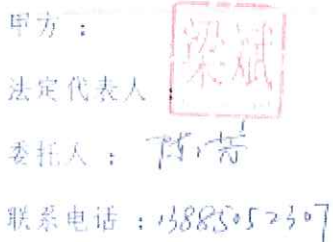 甲方：
法定代表人
委托人：陈芳
联系电话：13885052307